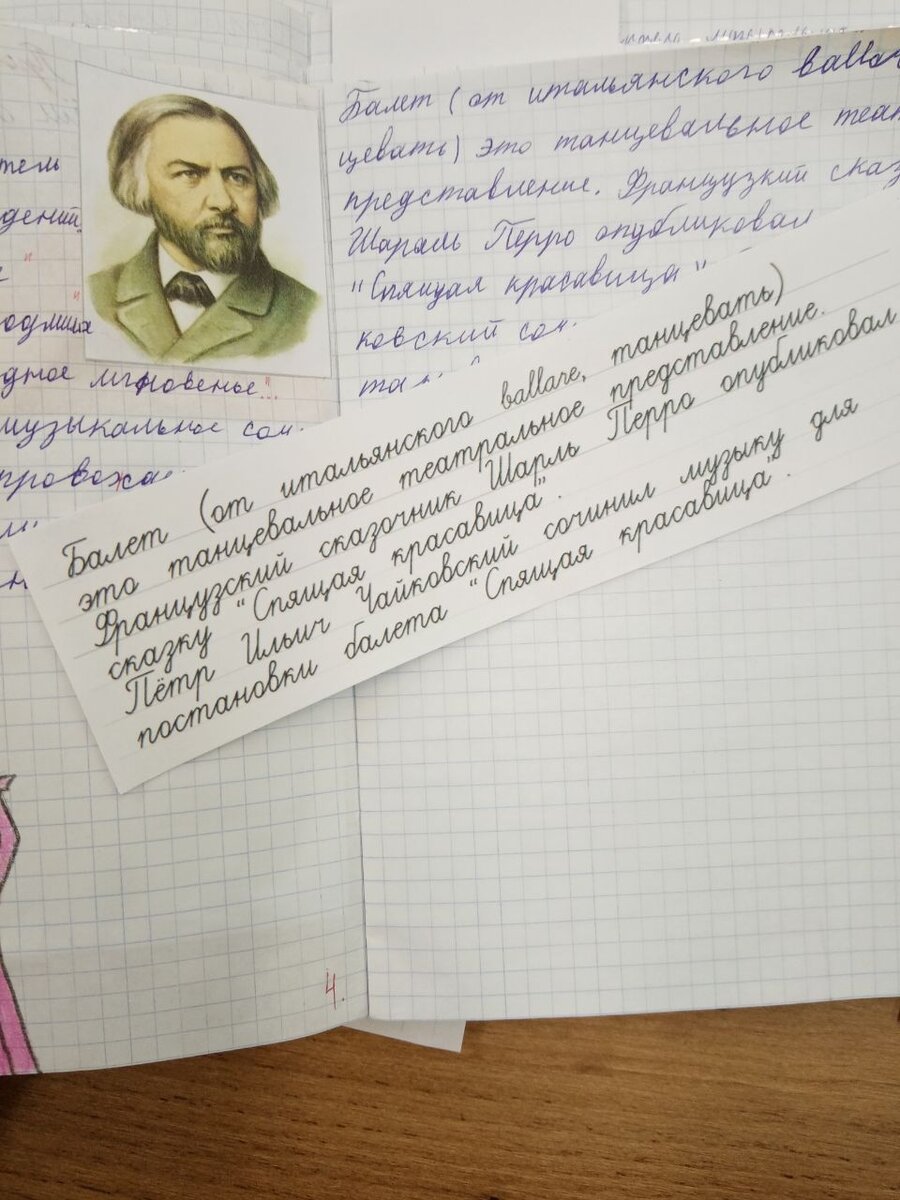 тель
дений.
"
одмила
дное мгновенье"...
музыкальное сол.
провожа
Балет (от итальянского ballar
цевать) это танцевальное теат
представление. Французкий сказ
Шарль Перро опубликовал
"Спящая красавица"
ковский
Балет (от итальянского ballare, танцевать)
это танцевальное театральное представление.
Французский сказочник Шарль Перро опубликовал
сказку "Спящая красавица".
Пётр Ильич Чайковский сочинил музыку для
постановки балета "Спящая красавица".
4.